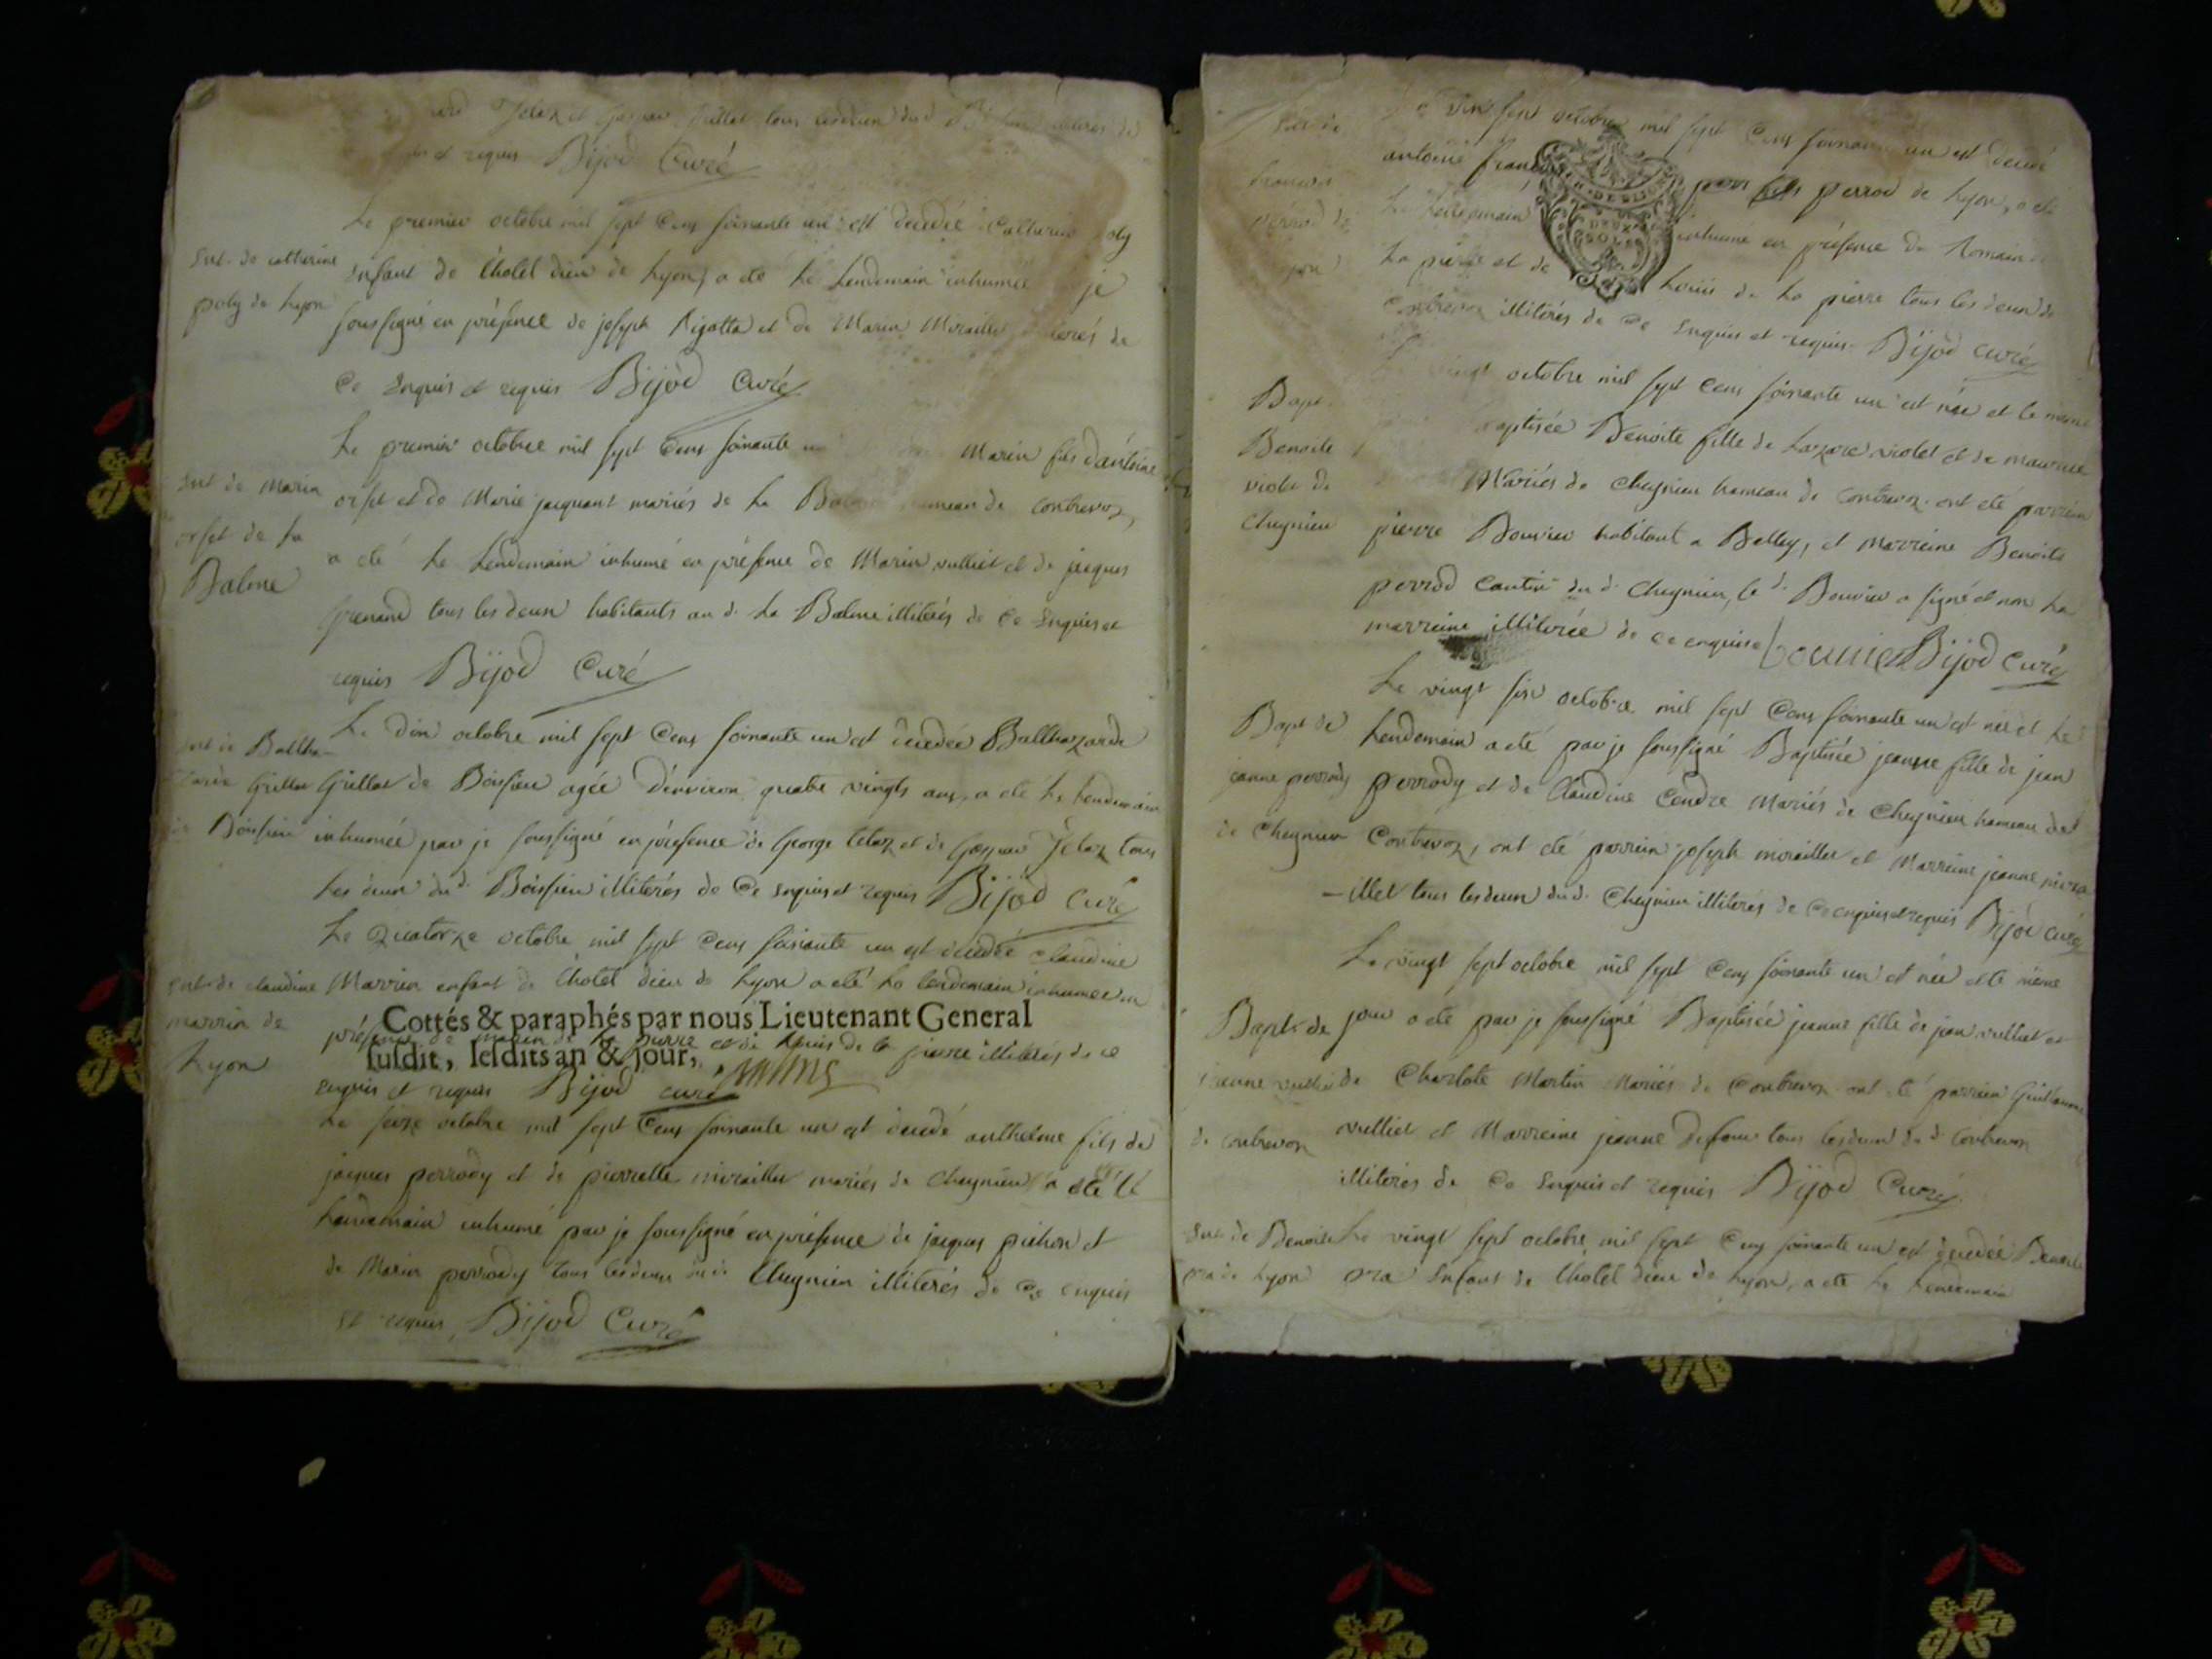 et Gaspar Grillet tous lesdeux dud
et requis Bijod Curé
Le premier octobre mil sept Cens soixante un est decedée Catherine poly
Sut. de catherine
poly de Lyon
enfant de l'hotel dieu de Lyon, a ete Le Lendemain inhumée je
soussigné en présence de joseph Rigottа et de Marin Moraille de
Ce Enquis et requis Bijod Curé
Le premier octobre mil sept Cens soixante Marin fils dantoine
Sut de Marin
orset de La
Balme
orset et de Marie jacquant mariés de La de Contrevoz,
a eté Le Lendemain inhumé en présence de Marin vulliet et de jacques
grenand tous les deux habitants au d. La Balme illiterés de Ce Enquis et
requis Bijod Curé
Le dix octobre mil sept Cens soixante un est decedée Balthazarde
Sut de Baltha-
zarde Grillet
de Boissieu
Grillet de Boissieu agée d'environ quatre vingts ans, a eté Le Lendemain
inhumée par je soussigné en présence de George telaz et de Gaspar Jelaz tous
Les deux dud. Boissieu illiterés de Ce Enquis et requis Bijod Curé
Le Quatorze octobre mil sept Cens soixante un est decedée claudine
Sut de claudine
marrin de
Lyon
Marrin enfant de Lhotel dieu de Lyon a eté Le lendemain inhumée en
Cottés & paraphés par nous Lieutenant General
présence de marin de la pierre et de Louis de la pierre illiterés de ce
susdit, lesdits an & jour,
enquis et requis Bijod curé
Le seize octobre mil sept Cens soixante un est decedé anthelme fils de
jacques perrody et de pierrette miraillet mariés de Cheynieu, a eté Le
Lendemain inhumé par je soussigné en présence de jacques pichon et
de Marin perrody tous lesdeux dud. Cheynieu illiterés de Ce enquis
et requis Bijod Curé
sept octobre mil sept Cens soixante un est decedé
Sut de
francois
perrod de
antoine perrod de Lyon, a ete
Le Lendemain inhumé en présence de Romain de
DEUX
SOLS
La pierre et de Louis de La pierre tous les deux de
Contrevoz illiterés de Ce Enquis et requis Bijod curé
vingt octobre mil sept Cens soixante un est née et le même
Bapt.
Benoite
violet de
Cheynieu
Baptisée Benoite fille de Lazare violet et de
Mariés de Cheynieu hameau de Contrevoz ont eté parrein
pierre Bouvier habitant a Belley, et Marreine Benoite
perrod du d. Cheynieu, le d. Bouvier a signé et non La
marreine illiterée de ce enquise Bouvier Bijod curé
Le vingt six octobre mil sept Cens soixante un est née et Le
Bapt de
jeanne perrody
de Cheynieu
Lendemain a eté par je soussigné Baptisée jeanne fille de jean
perrody et de Claudine Cendre Mariés de Cheynieu hameau de
Contrevoz, ont eté parrein joseph miraillet et Marreine jeanne mira
-illet tous lesdeux dud. Cheynieu illiterés de Ce enquis et requis Bijod curé
Le vingt sept octobre mil sept Cens soixante un est née et le même
Bapt. de
jeanne vulliet
de contrevoz
jour a eté par je soussigné Baptisée jeanne fille de jean vulliet et
de Charlote Martin Mariés de Contrevoz ont eté parrein Guillaume
vulliet et Marreine jeanne Dufour tous lesdeux du d. Contrevoz
illiterés de Ce Enquis et requis Bijod Curé
Sut de Benoite
pra de Lyon
Le vingt sept octobre mil sept Cens soixante un est decedée Benoite
pra Enfant de Lhotel dieu de Lyon, a eté Le Lendemain